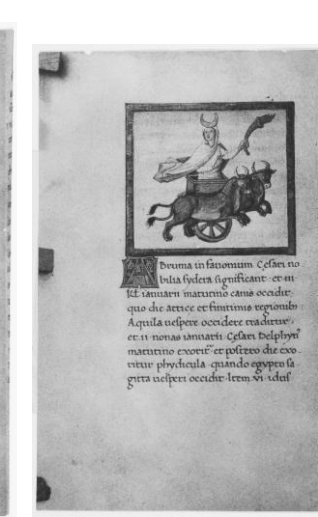 A Bruma in fauonium Cesari no
bilia sydera significant et iii
kł ianuarii matutino canis occidit
quo die attice et finitimis regionibꝰ
Aquila uespere occidere traditur
et ii nonas ianuarii Cesari Delphyꝰ
matutino exorit᷑ et postero die exo
ritur phydicula quando egypto sa
gitta uesperi occidit Item vi idus